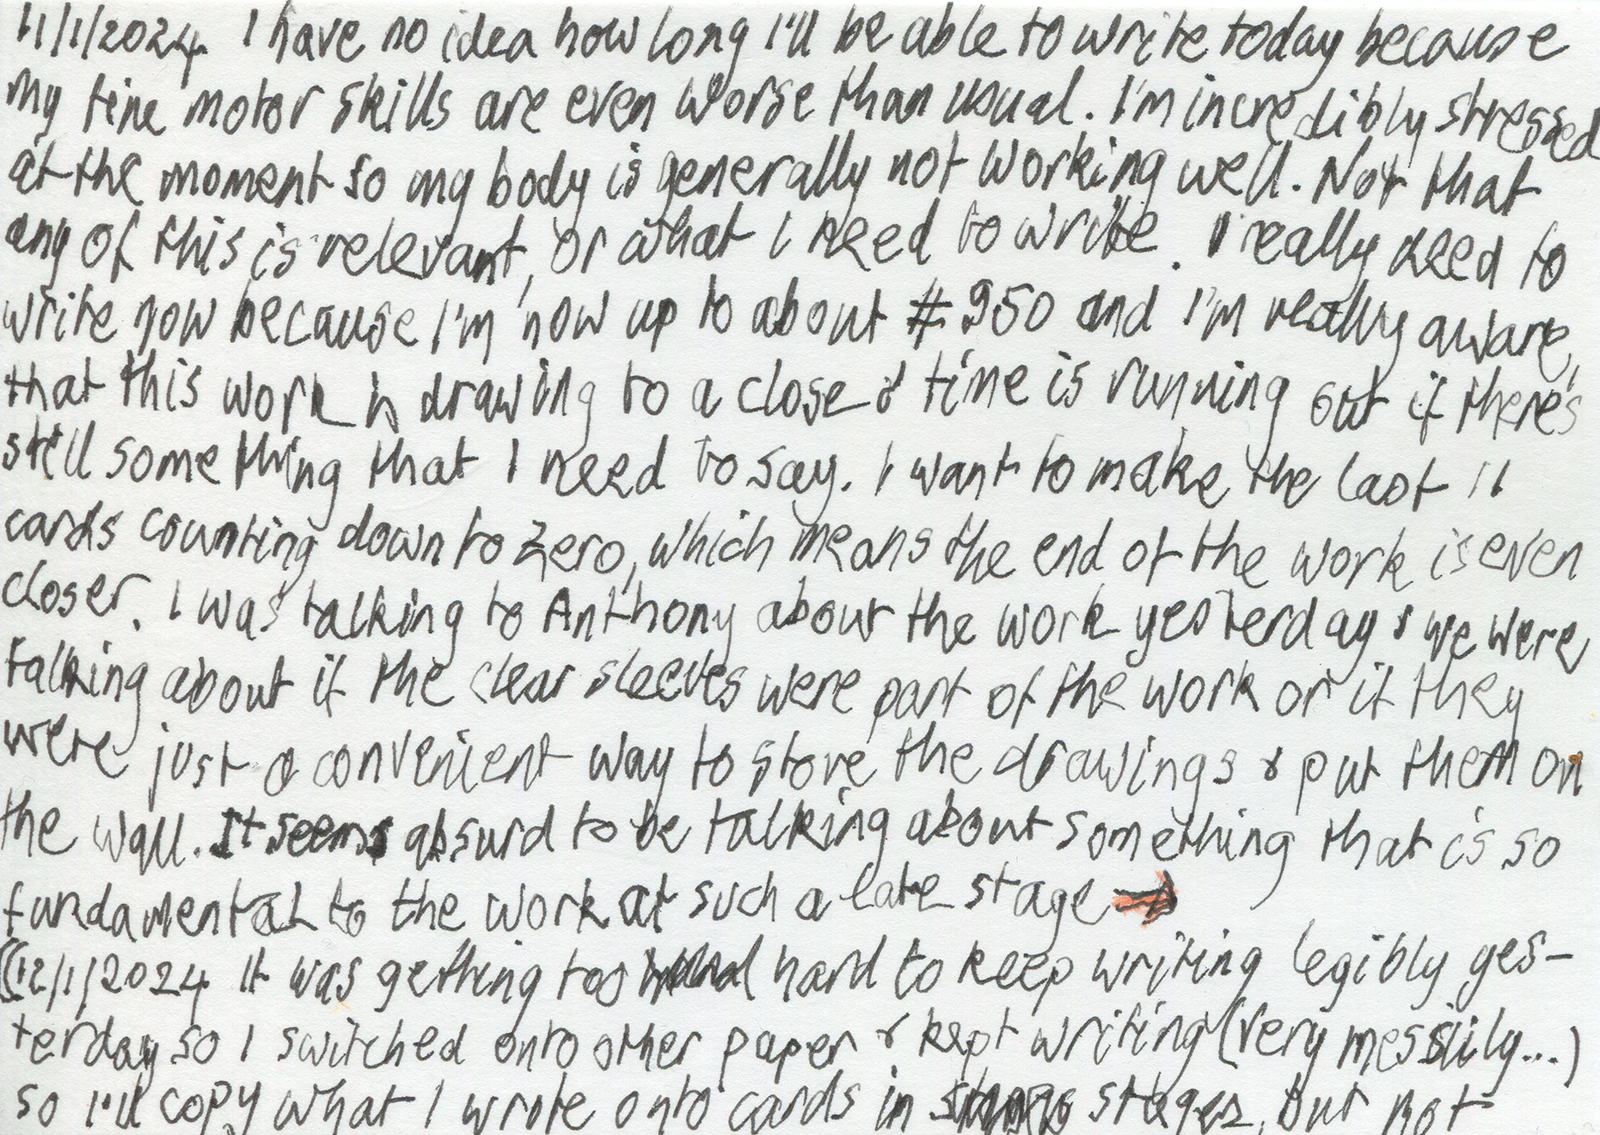 11/1/2024. I have no idea how long I'll be able to write today because
my fine motor skills are even worse than usual. I'm incredibly stressed
at the moment so my body is generally not working well. Not that
any of this is relevant, or what I need to write. I really need to
write now because I'm now up to about #950 and I'm really aware,
that this work is drawing to a close & time is running out if there's
still something that I need to say. I want to make the last 11
cards counting down to zero, which means the end of the work is even
closer. I was talking to Anthony about the work yesterday & we were
talking about if the clear sleeves were part of the work or if they
were just a convenient way to store the drawings & put them on
the wall. It seems absurd to be talking about something that is so
fundamental to the work at such a late stage →
((12/1/2024 It was getting too hard to keep writing legibly yes-
terday so I switched onto other paper & kept writing (very messily...)
so I'll copy what I wrote onto cards in stages, but not